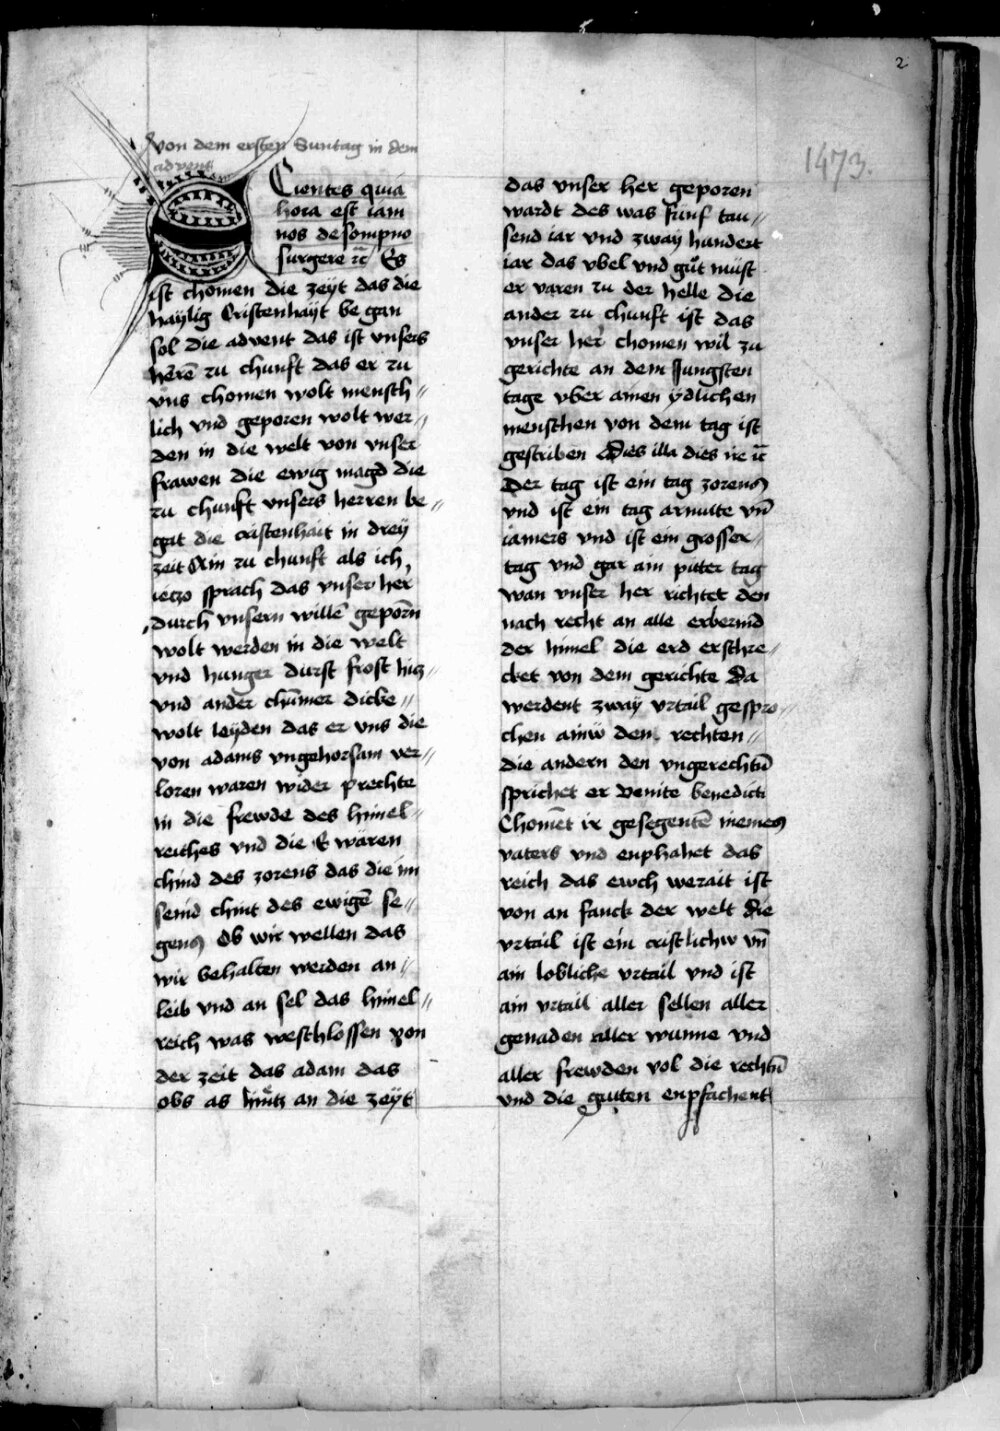 2
1473.
von dem ersten Suntag in dem
advent
Scientes quia
hora est iam
nos de sompno
surgere ꝛc̄ Es
ist chomen die zeyt das die
haylig Cristenhayt be gan
sol die advent das ist vnsers
herrē zu chunft das er zu
vns chomen wolt mensch⸗
lich vnd geporen wolt wer⸗
den in die welt von vnser
frawen die ewig magd die
zu chunft vnsers herren be⸗
gat die cristenhait in drey
zeit Ain zu chunft als ich
ietzo sprach das vnser her
durch vnsern willē geporn̄
wolt werden in die welt
vnd hunger durst frost hicz
vnd ander chum̄er dicke
wolt leyden das er vns die
von adams vngehorsam ver⸗
loren waren wider prechte
in die frewde des himel⸗
reiches vnd die E waren
chind des zorens das die im
seind chint des ewigē se⸗
gens Ob wir wellen das
wir behalten werden an
leib vnd an sel das himel⸗
reich was weschlossen von
der zeit das adam das
obs as hintz an die zeyt
das vnser her geporen
wardt des was funf tau⸗
send iar vnd zway hundert
iar das vbel vnd gůt must
er varen zu der helle die
ander zu chunft ist das
vnser her chomen wil zu
gerichte an dem Jungsten
tage vber ainen ydlichen
menschen von dem tag ist
gestriben Dies illa dies ire ꝛc̄
Der tag ist ein tag zorens
vnd ist ein tag armute vn̄
iamers vnd ist ein grosser
tag vnd gar ain pitter tag
wan vnser her richtet den
nach recht an alle erbermd
der himel die erd erschre⸗
cket von dem gerichte Da
werdent zway vrtail gespro⸗
chen ainw den rechten
die andern den vngerechtn̄
sprichet er venite benedicti
Chomēt ir gesegentē meines
vaters vnd enphahet das
reich das ewch werait ist
von an fanck der welt die
vrtail ist ein cristlichw vn̄
ain lobliche vrtail vnd ist
ain vrtail aller sellen aller
genaden aller wunne vnd
aller frewden vol die rechtn̄
vnd die guten enpfachent